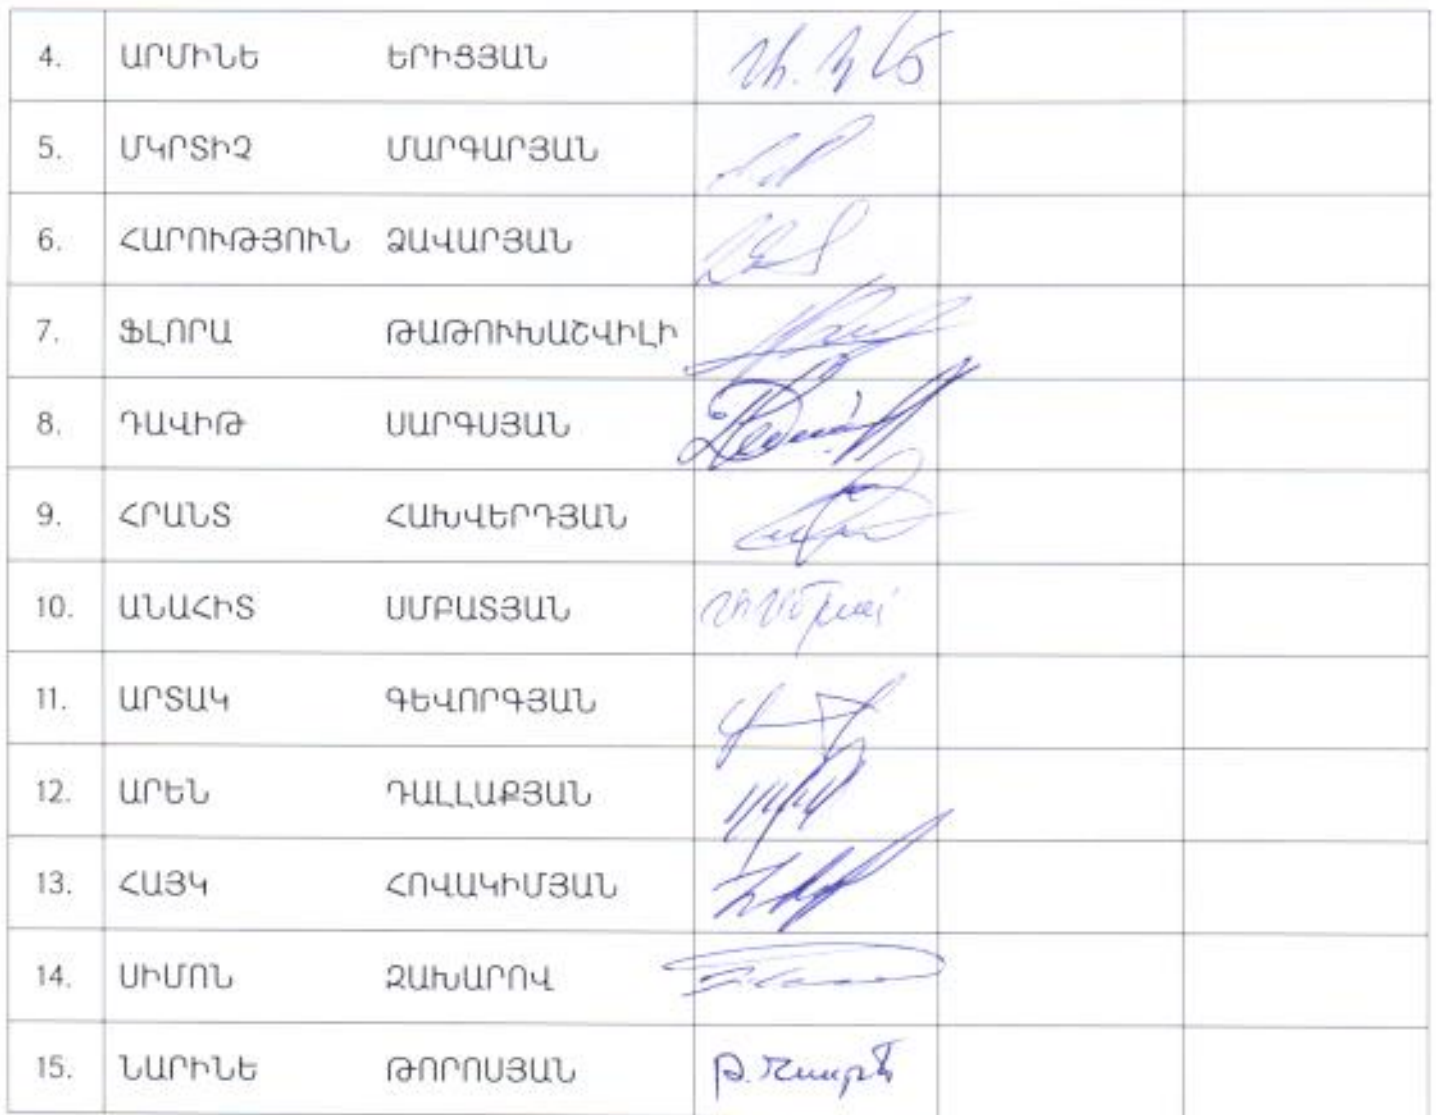 4. ԱՐՄԻՆԵ ԵՐԻՑՅԱՆ
5. ՄԿՐՏԻՉ ՄԱՐԳԱՐՅԱՆ
6. ՀԱՐՈՒԹՅՈՒՆ ՁԱՎԱՐՅԱՆ
7. ՖԼՈՐԱ ԹԱԹՈՒԽԱՇՎԻԼԻ
8. ԴԱՎԻԹ ՍԱՐԳՍՅԱՆ
9. ՀՐԱՆՏ ՀԱԽՎԵՐԴՅԱՆ
10. ԱՆԱՀԻՏ ՍՄԲԱՏՅԱՆ
11. ԱՐՏԱԿ ԳԵՎՈՐԳՅԱՆ
12. ԱՐԵՆ ԴԱԼԼԱՔՅԱՆ
13. ՀԱՅԿ ՀՈՎԱԿԻՄՅԱՆ
14. ՍԻՄՈՆ ԶԱԽԱՐՈՎ
15. ՆԱՐԻՆԵ ԹՈՐՈՍՅԱՆ